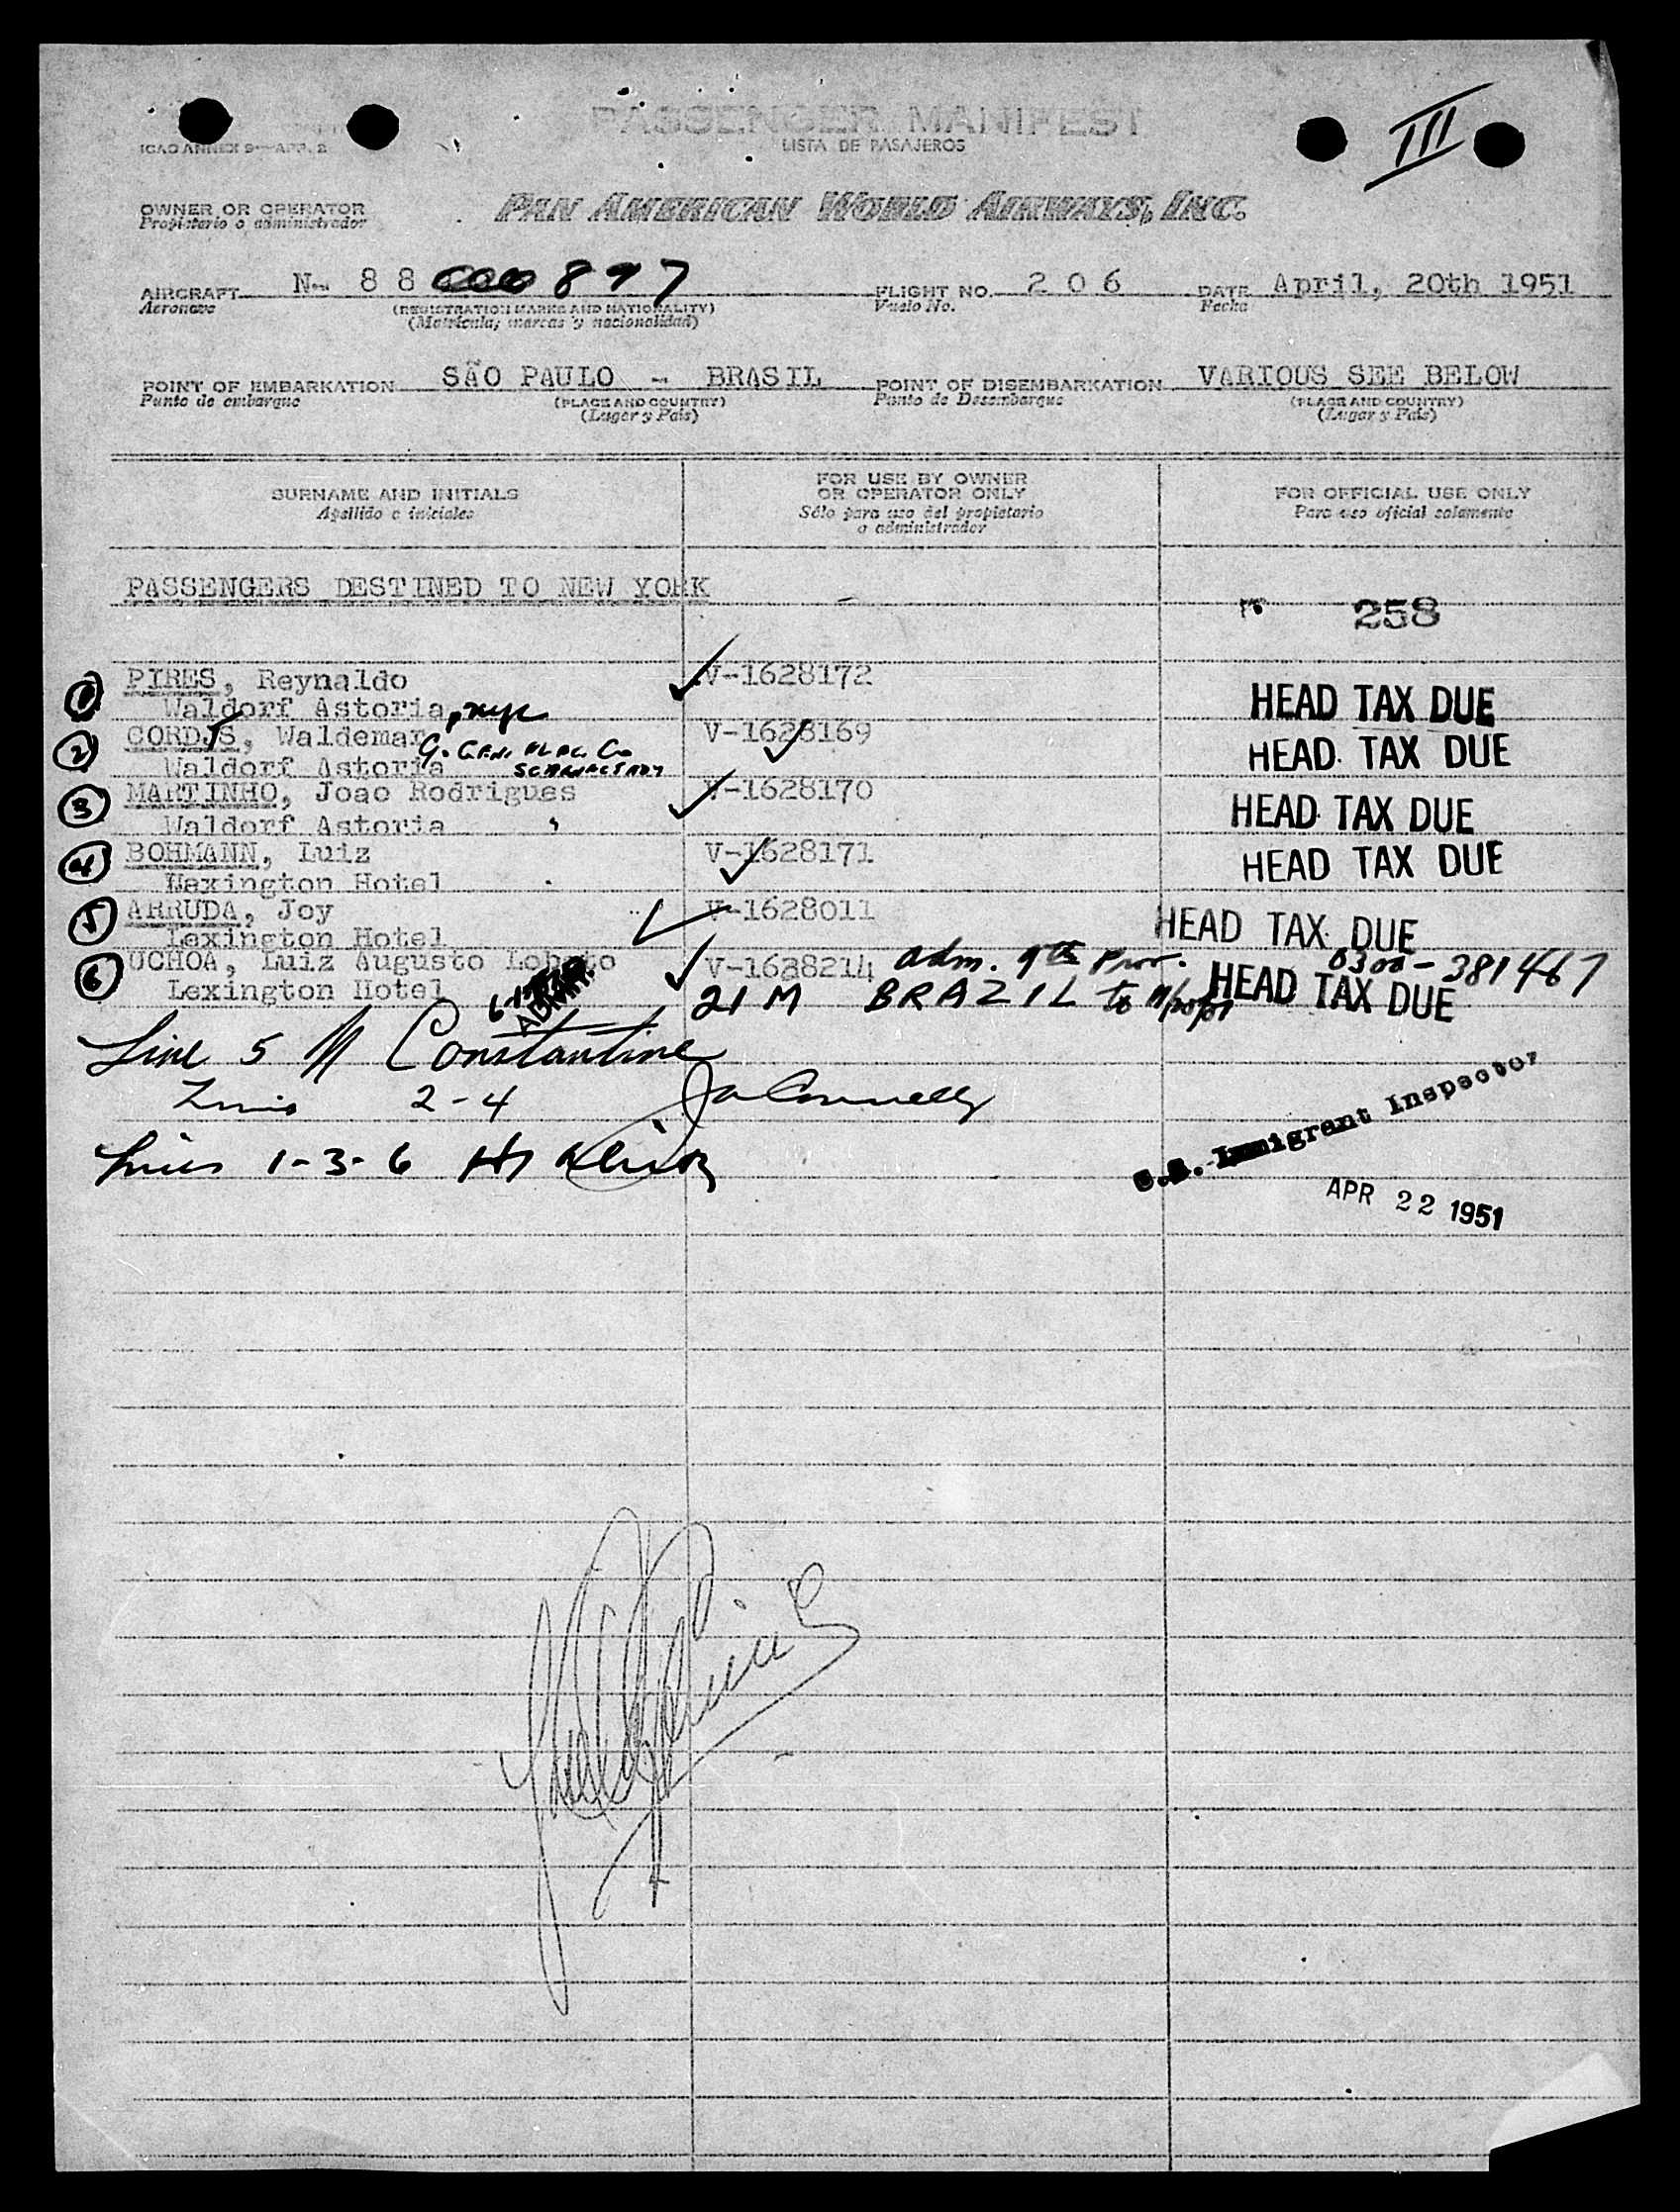 III
PASSENGER MANIFEST
LISTA DE PASAJEROS
ICAO ANNEX 9—APP. 2
OWNER OR OPERATOR
Propietario o administrador
PAN AMERICAN WORLD AIRWAYS, INC.
AIRCRAFT N- 88 897 FLIGHT NO. 206 DATE April, 20th 1951
Aeronave (REGISTRATION MARKS AND NATIONALITY) Vuelo No. Fecha
(Matrícula, marcas y nacionalidad)
POINT OF EMBARKATION SÃO PAULO - BRASIL POINT OF DISEMBARKATION VARIOUS SEE BELOW
Punto de embarque (PLACE AND COUNTRY) Punto de Desembarque (PLACE AND COUNTRY)
(Lugar y País) (Lugar y País)
SURNAME AND INITIALS
Apellido e iniciales
FOR USE BY OWNER
OR OPERATOR ONLY
Sólo para uso del propietario
o administrador
FOR OFFICIAL USE ONLY
Para uso oficial solamente
PASSENGERS DESTINED TO NEW YORK
258
1 PIRES, Reynaldo V-1628172 HEAD TAX DUE
Waldorf Astoria, nyc
2 CORDTS, Waldemar V-1628169 HEAD TAX DUE
Waldorf Astoria G. GEN. ELEC. Co SCHENECTADY
3 MARTINHO, Joao Rodrigues V-1628170 HEAD TAX DUE
Waldorf Astoria
4 BOHMANN, Luiz V-1628171 HEAD TAX DUE
Wexington Hotel
5 ARRUDA, Joy V-1628011 HEAD TAX DUE
Lexington Hotel
6 UCHOA, Luiz Augusto Lobato V-1638214 adm. 9th Prov. 0300-381467
Lexington Hotel 21 M BRAZIL to HEAD TAX DUE
Line 5 M Constantine
Lines 2-4 Connelly
Lines 1-3-6
U.S. Immigrant Inspector
APR 22 1951